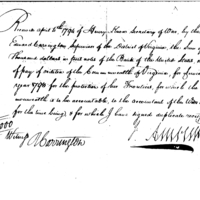 Received April 5th 1794 of Henry Knox Secretary of War, by the
Edward Carrington Supervisor of the District of Virginia, the Sum of
Thousand dollars in post notes of the Bank of the United States
of pay of militia of the Commonwealth of Virginia, for
year 1793 for the protection of the Frontiers, for which the
monwealth is to be accountable, to the accountant of the War
for the time being; & for which I have signed duplicate
000
Carrington